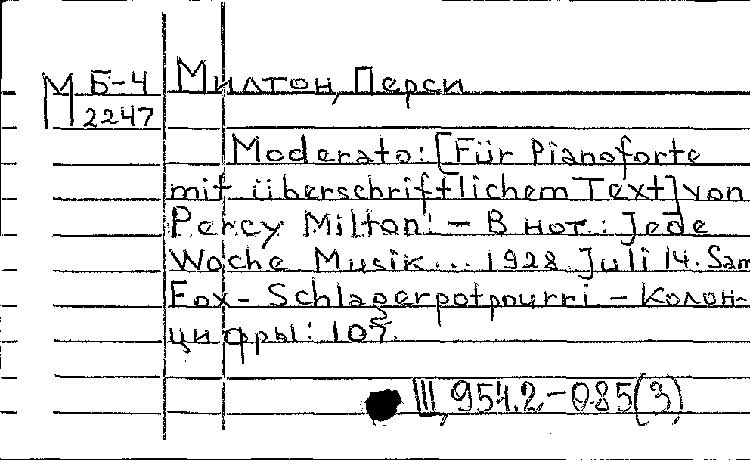 М Б-4
2247
Милтон, Перси
Moderato: [Für Pianoforte
mit überschriftlichem Text] von
Percy Milton. - В нот.: Jede
Woche Musik... 1928 Juli 14. Sam
Fox - Schlagerpotpourri - Колон-
цифры: 105.
III, 954.2-085(3)